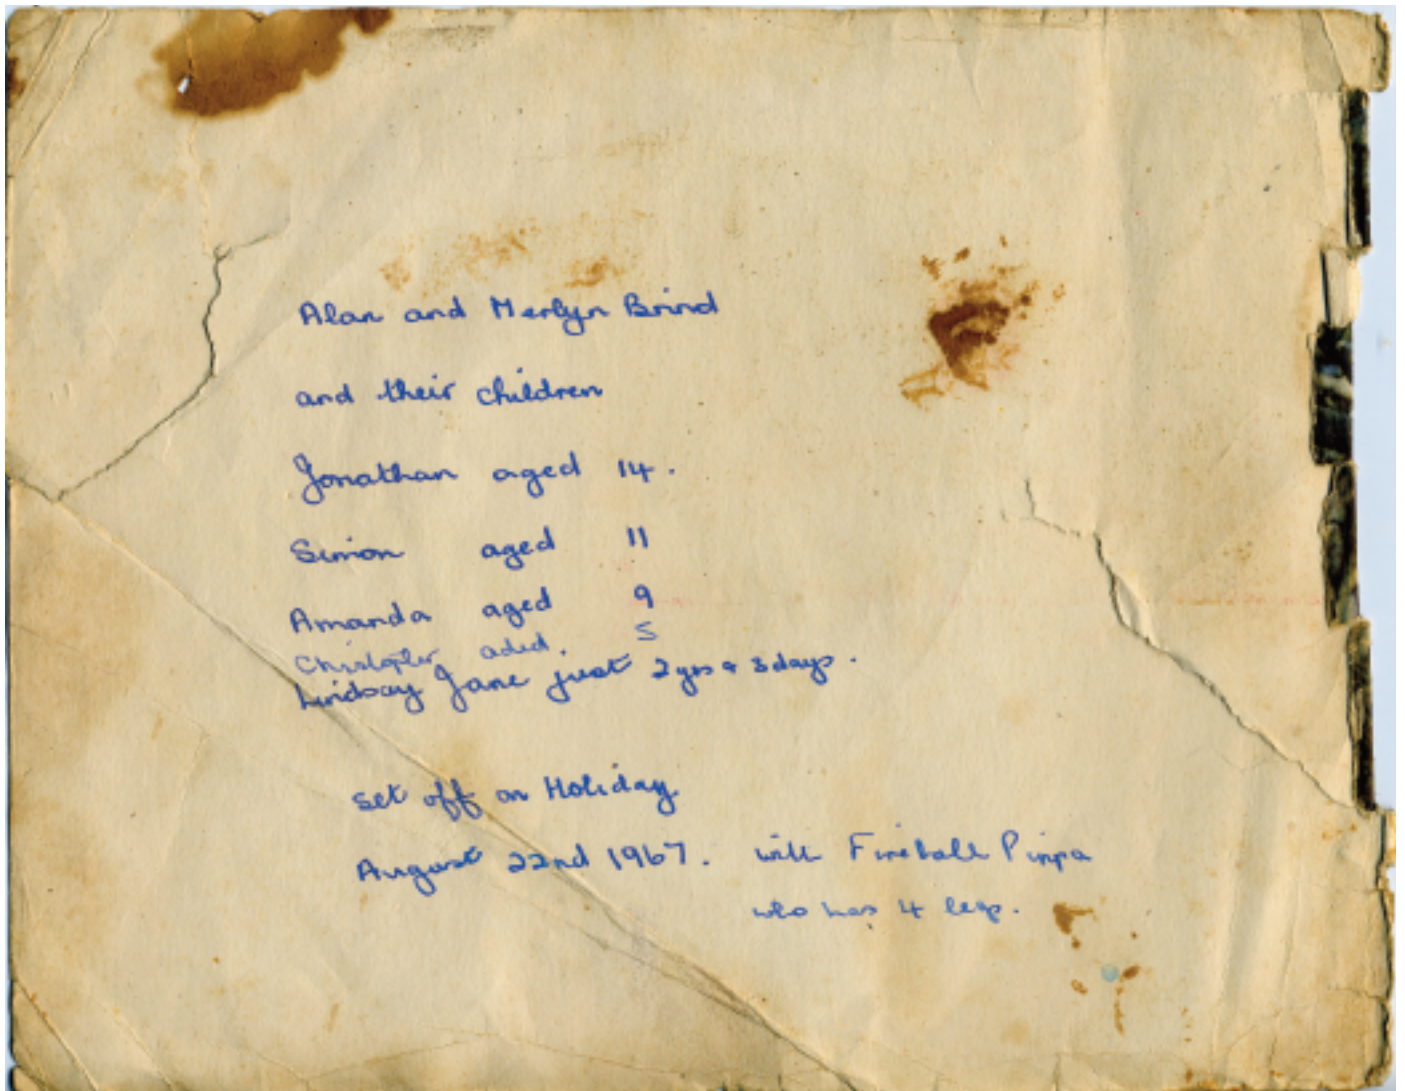 Alan and Merlyn Brind
and their children
Jonathan aged 14.
Simon aged 11
Amanda aged 9
Christopher aged. 5
Lindsay Jane just 2 yrs & 3 days.
set off on Holiday
August 22nd 1967. with Fireball Pippa
who has 4 legs.